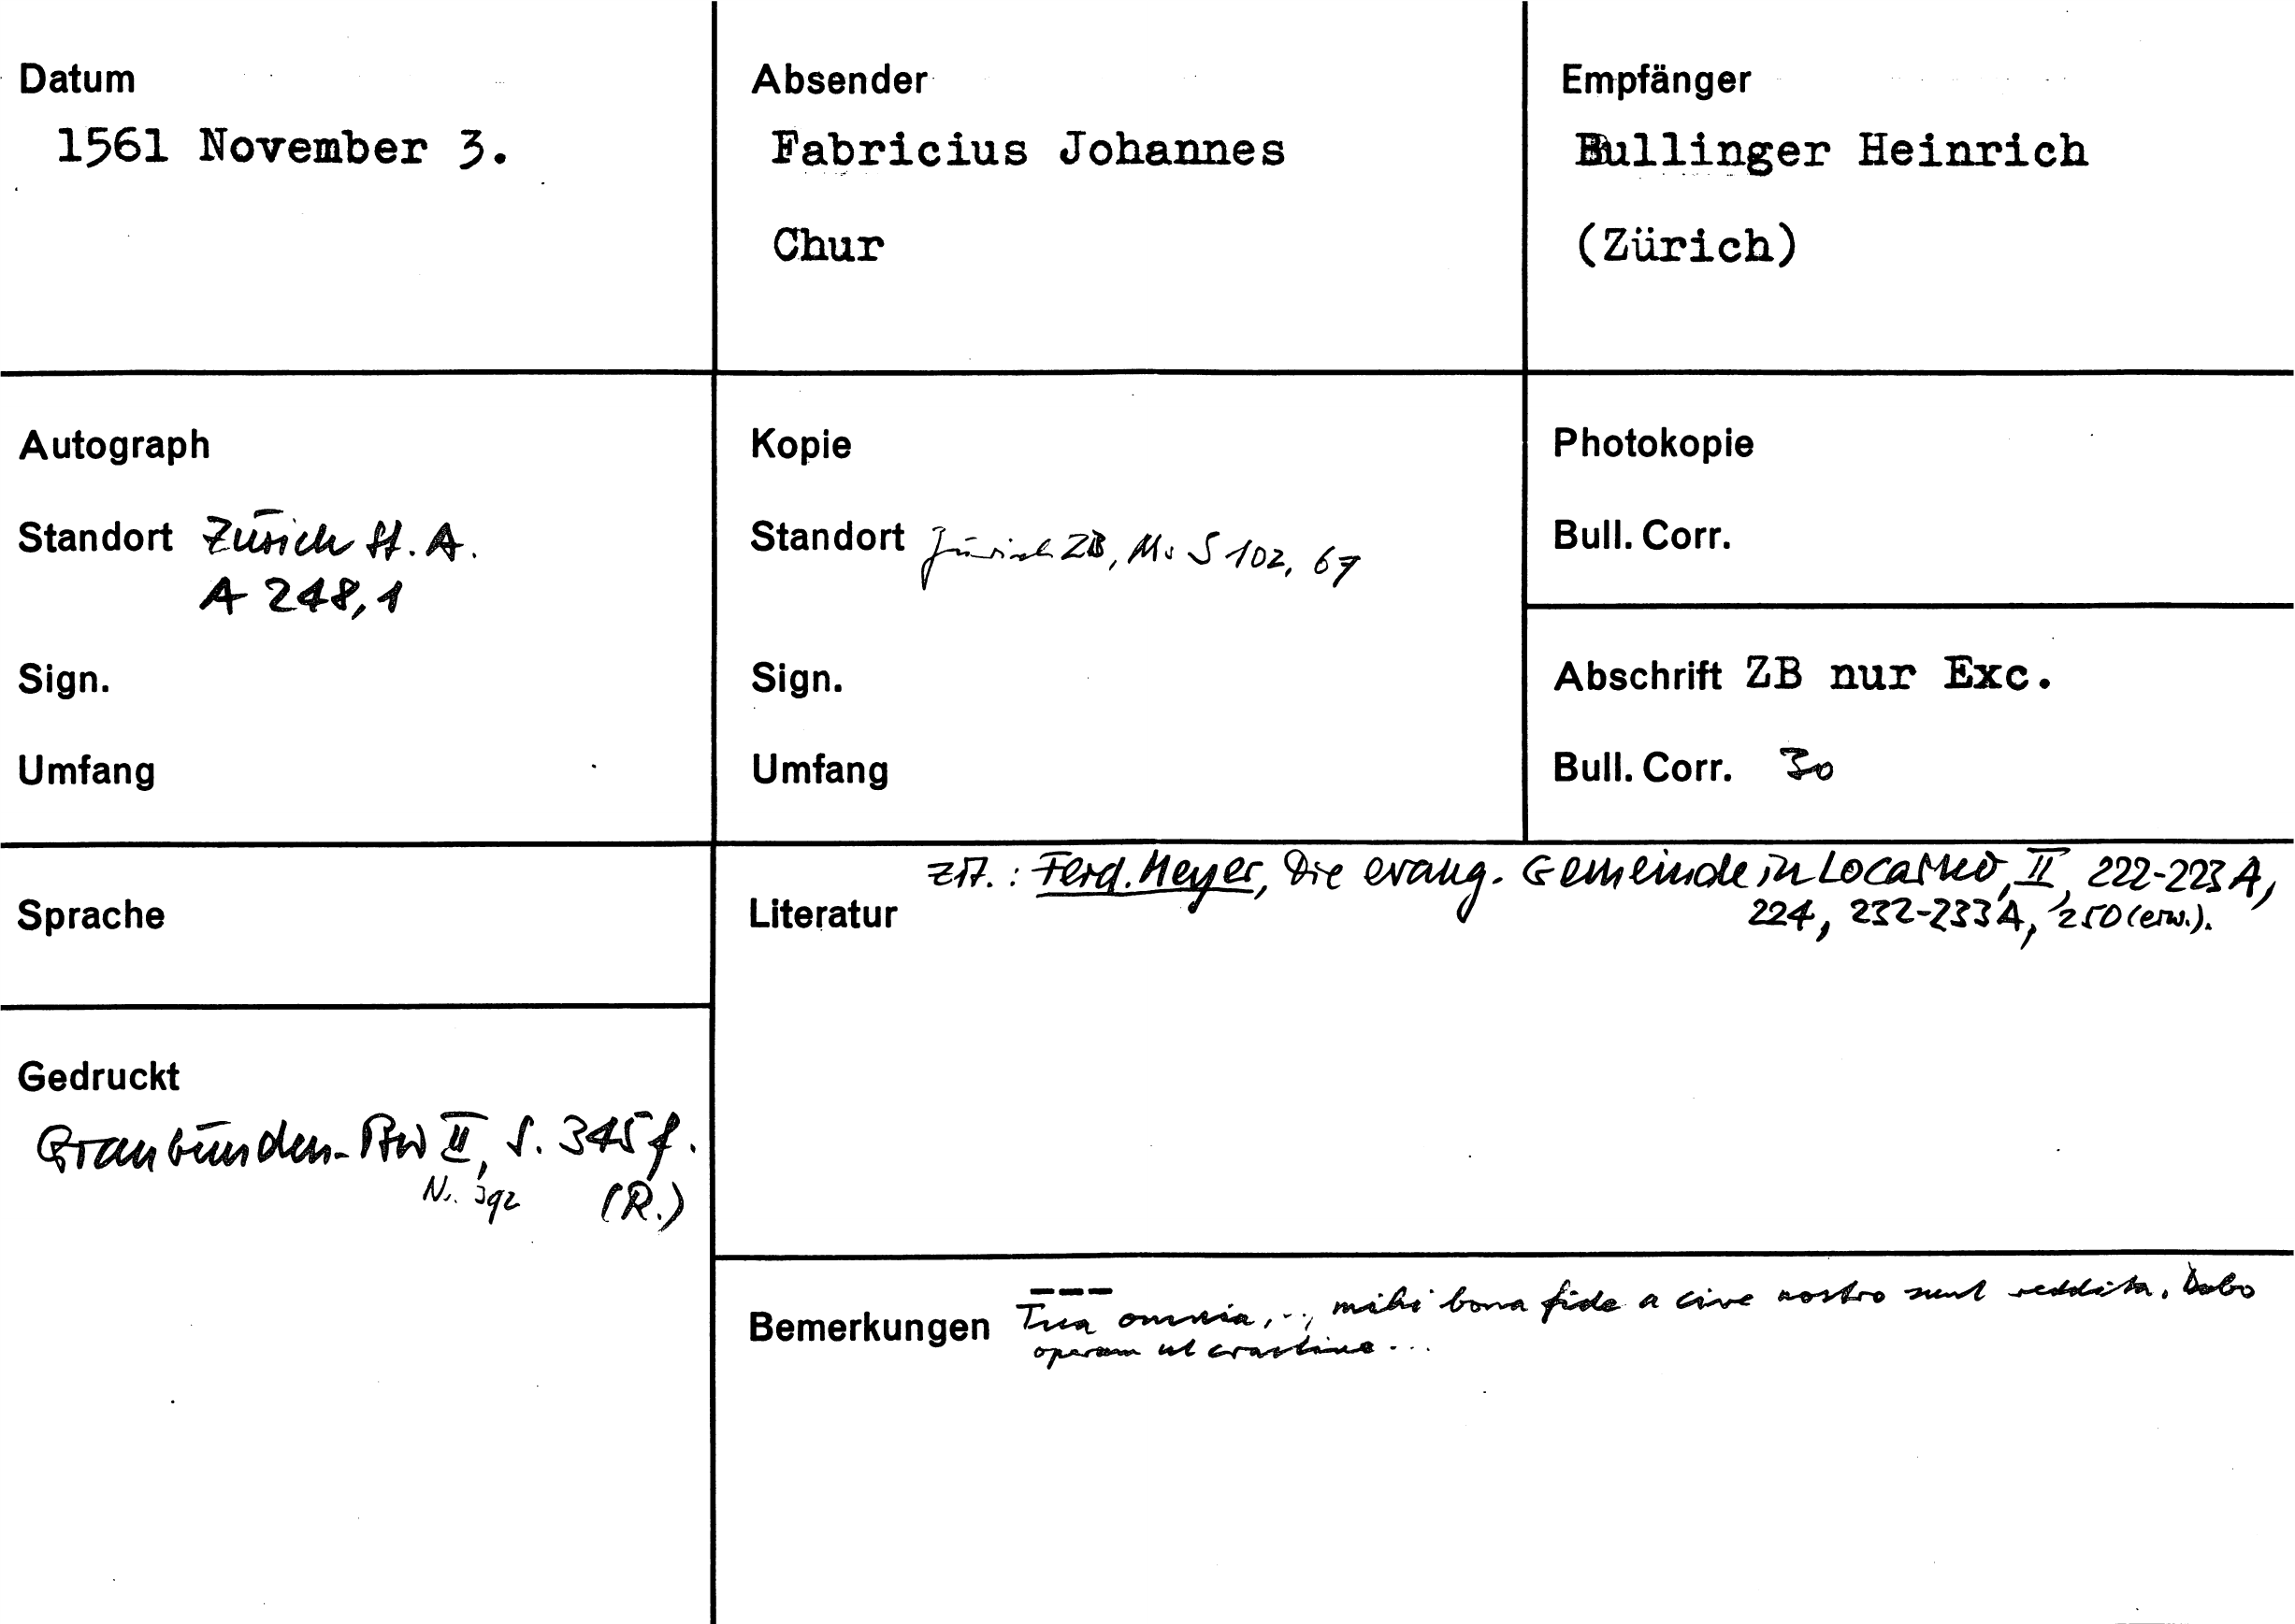 Datum
1561 November 3.
Absender
Fabricius Johannes
Chur
Empfänger
Bullinger Heinrich
(Zürich)
Autograph
Standort Zürich St. A.
A 248,1
Sign.
Umfang
Kopie
Standort Zürich ZB, Ms S 102, 67
Sign.
Umfang
Photokopie
Bull. Corr.
Abschrift ZB nur Exc.
Bull. Corr. 30
Sprache
Literatur
zit.: Ferd. Meyer, Die evang. Gemeinde in Locarno, II, 222-223 A,
224, 232-233 A, 250 (erw.).
Gedruckt
Graubünden-Bw II, S. 345 f.
Nr. 392 (R.)
Bemerkungen
Tua omnia, .., mihi bona fide a cive nostro sunt reddita. Dabo
operam ut crastino...